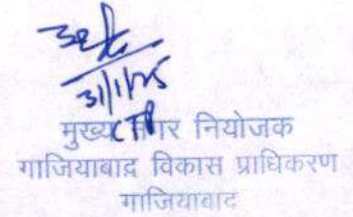 31/1/25
CTP
मुख्य नगर नियोजक
गाजियाबाद विकास प्राधिकरण
गाजियाबाद